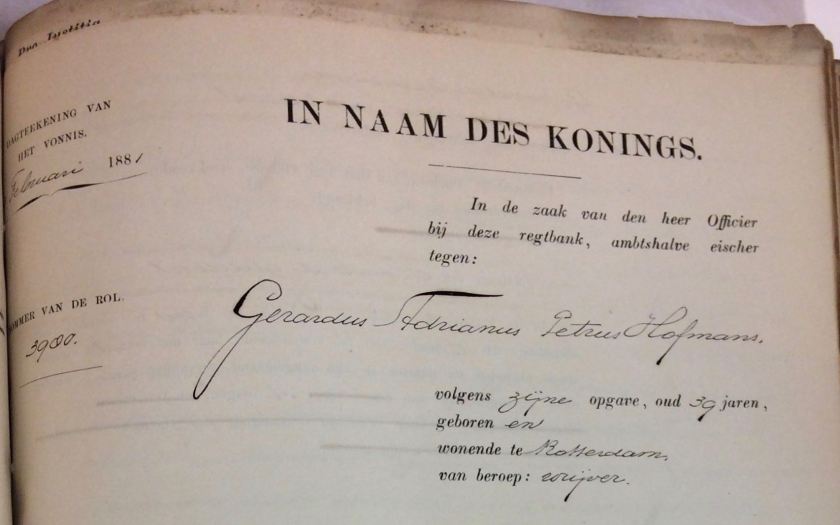 Pro Justitia
DAGTEEKENING VAN
HET VONNIS.
Februari 1881
IN NAAM DES KONINGS.
In de zaak van den heer Officier
bij deze regtbank, ambtshalve eischer
tegen:
NOMMER VAN DE ROL.
3900.
Gerardus Adrianus Petrus Hofmans.
volgens zijne opgave, oud 39 jaren,
geboren en
wonende te Rotterdam,
van beroep: